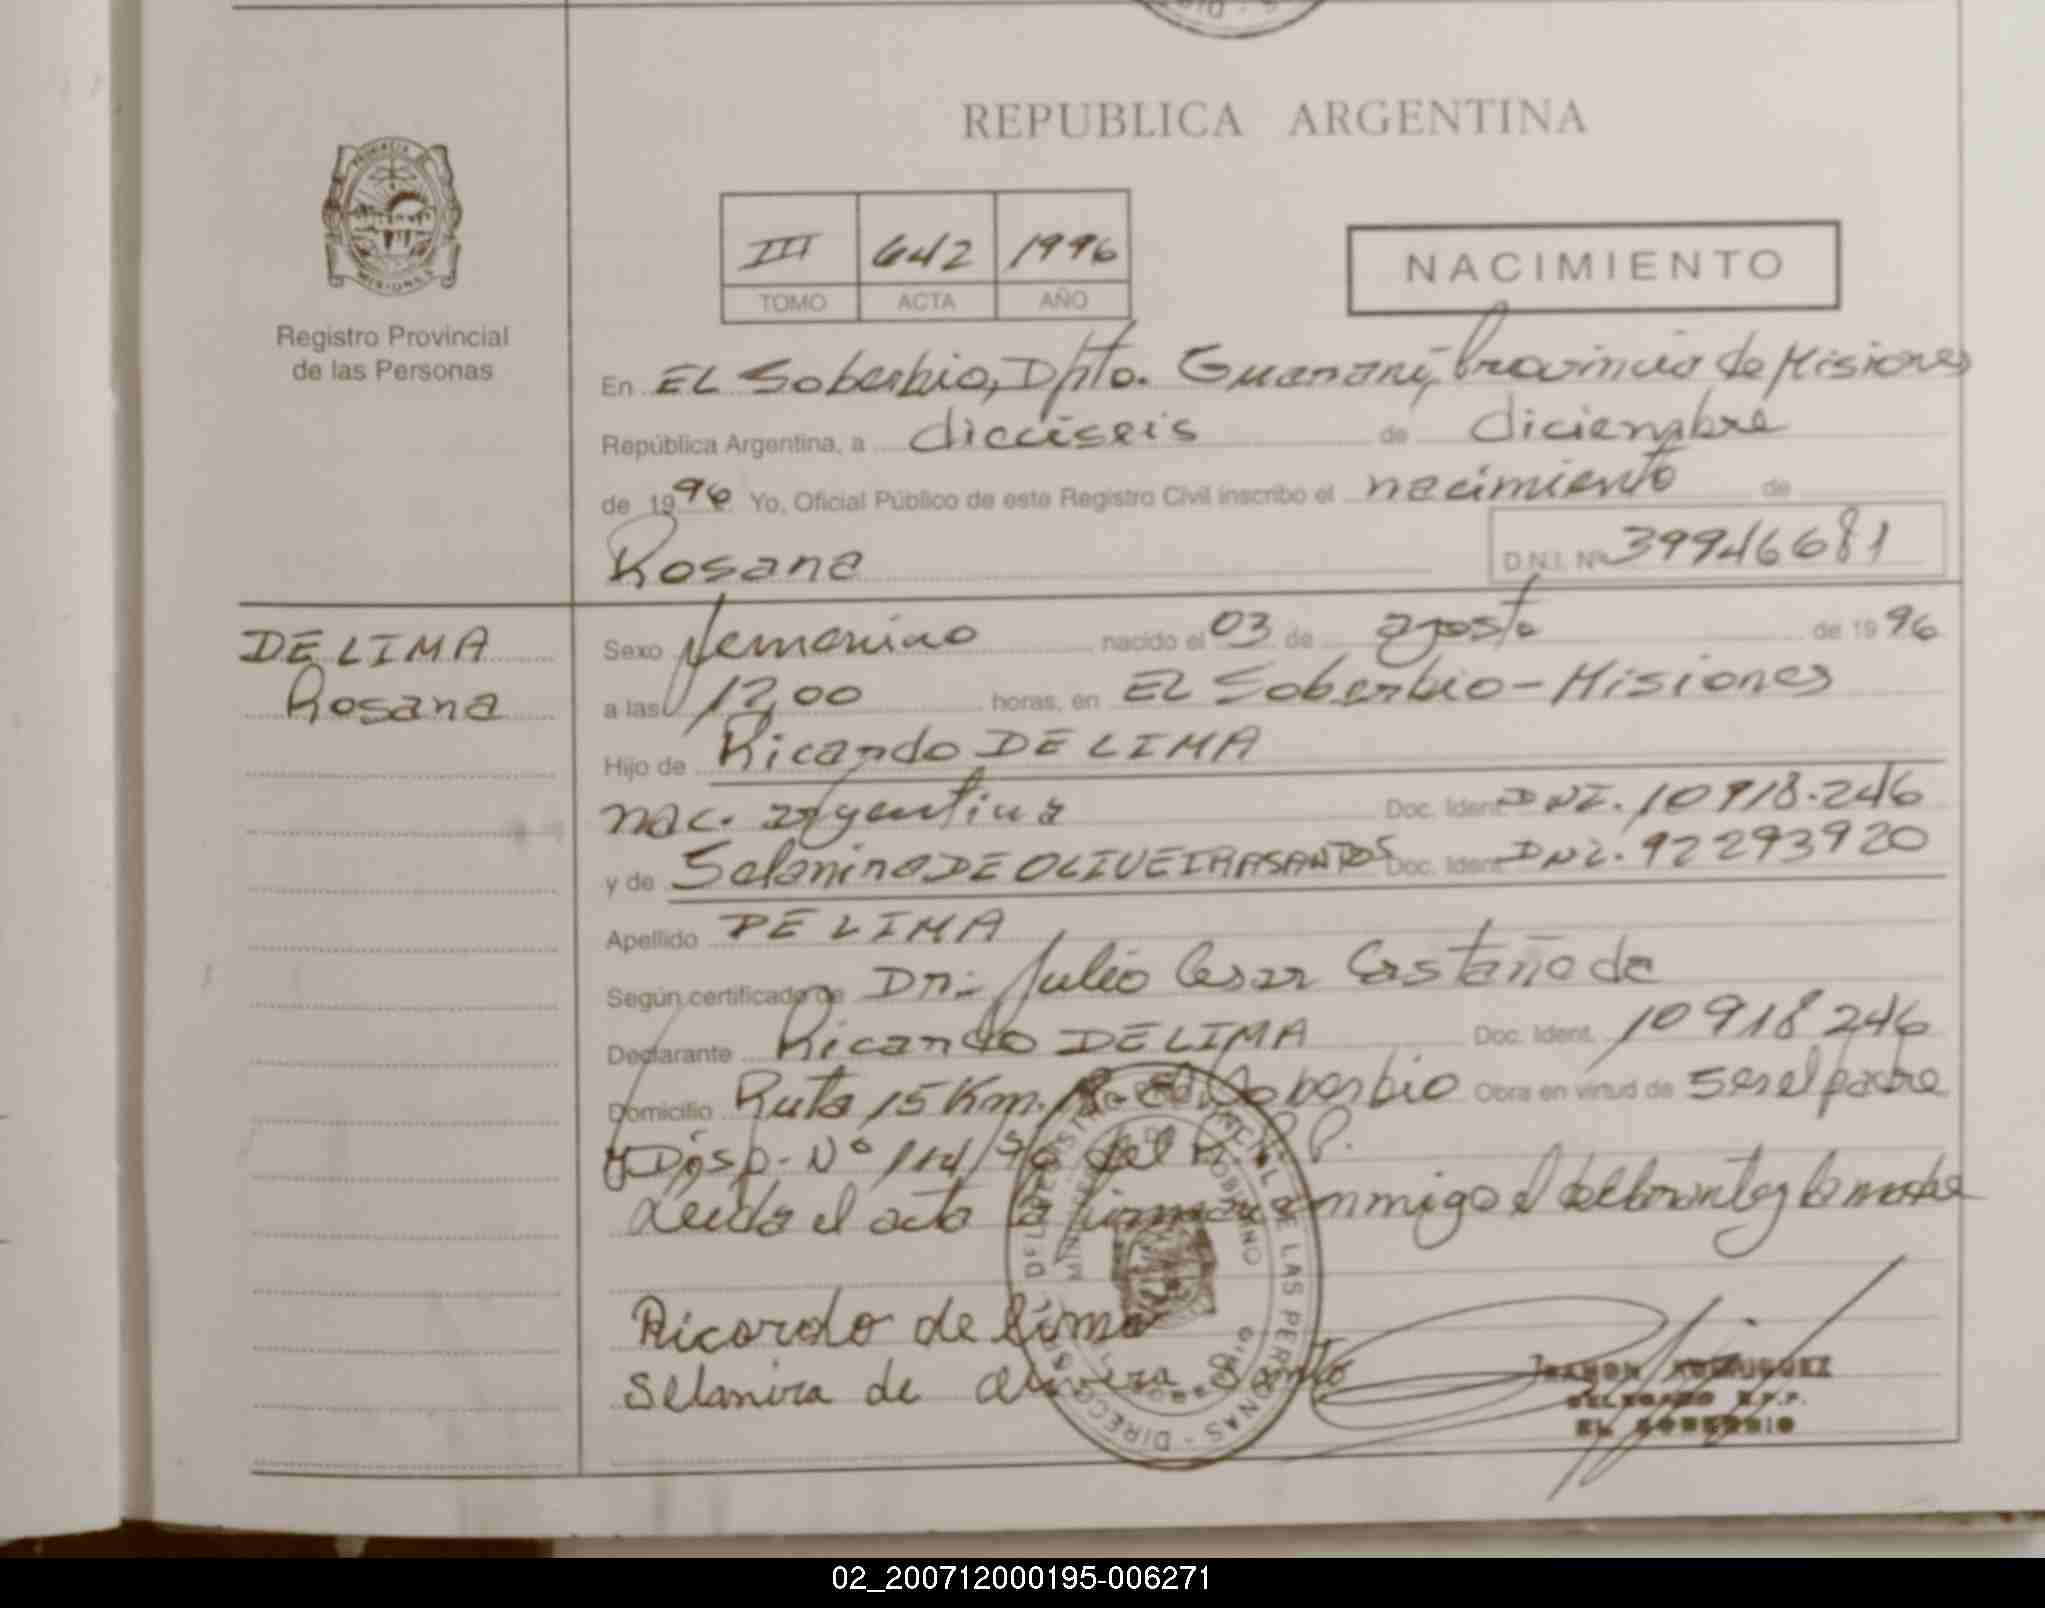 REPUBLICA ARGENTINA
PROVINCIA DE
MISIONES
Registro Provincial
de las Personas
III 642 1996
TOMO ACTA AÑO
NACIMIENTO
En EL Soberbio, Dpto. Guaraní, Provincia de Misiones
República Argentina, a dieciseis de diciembre
de 1996 Yo, Oficial Público de este Registro Civil inscribo el nacimiento de
Rosana D.N.I. Nº 39946681
DE LIMA
Rosana
Sexo femenino nacido el 03 de agosto de 1996
a las 12,00 horas, en EL Soberbio - Misiones
Hijo de Ricardo DE LIMA
nac. argentina Doc. Ident. DNI. 10918.246
y de Selanira DE OLIVEIRA SANTOS Doc. Ident. DNI. 92293920
Apellido DE LIMA
Según certificado de Dr. Julio Cesar Castañoda
Declarante Ricardo DE LIMA Doc. Ident. 10918246
Domicilio Ruta 15 Km. El Soberbio Obra en virtud de ser el padre
y Disp. Nº 114/96 del R.P.P.
Leida el acta la firman conmigo el declarante y la madre
Ricardo de Lima
Selanira de Olivera Santo
RAMON RODRIGUEZ
DELEGADO R.P.P.
EL SOBERBIO
02_200712000195-006271